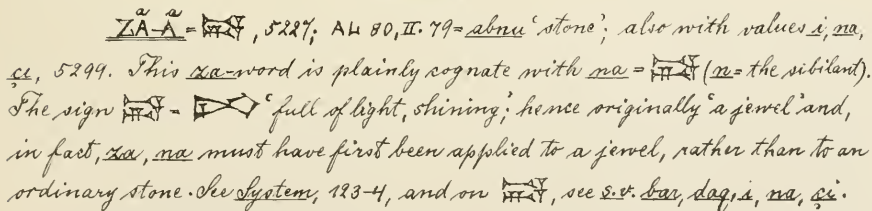 ZA-A = , 5227; AL 80, II. 79 = abnu ‘stone’; also with values i, na,
çi, 5299. This za-word is plainly cognate with na = (n = the sibilant).
The sign = ‘full of light, shining’; hence originally ‘a jewel’ and,
in fact, za, na must have first been applied to a jewel, rather than to an
ordinary stone. See System, 123-4, and on , see s.v. bar, dag, i, na, çi.